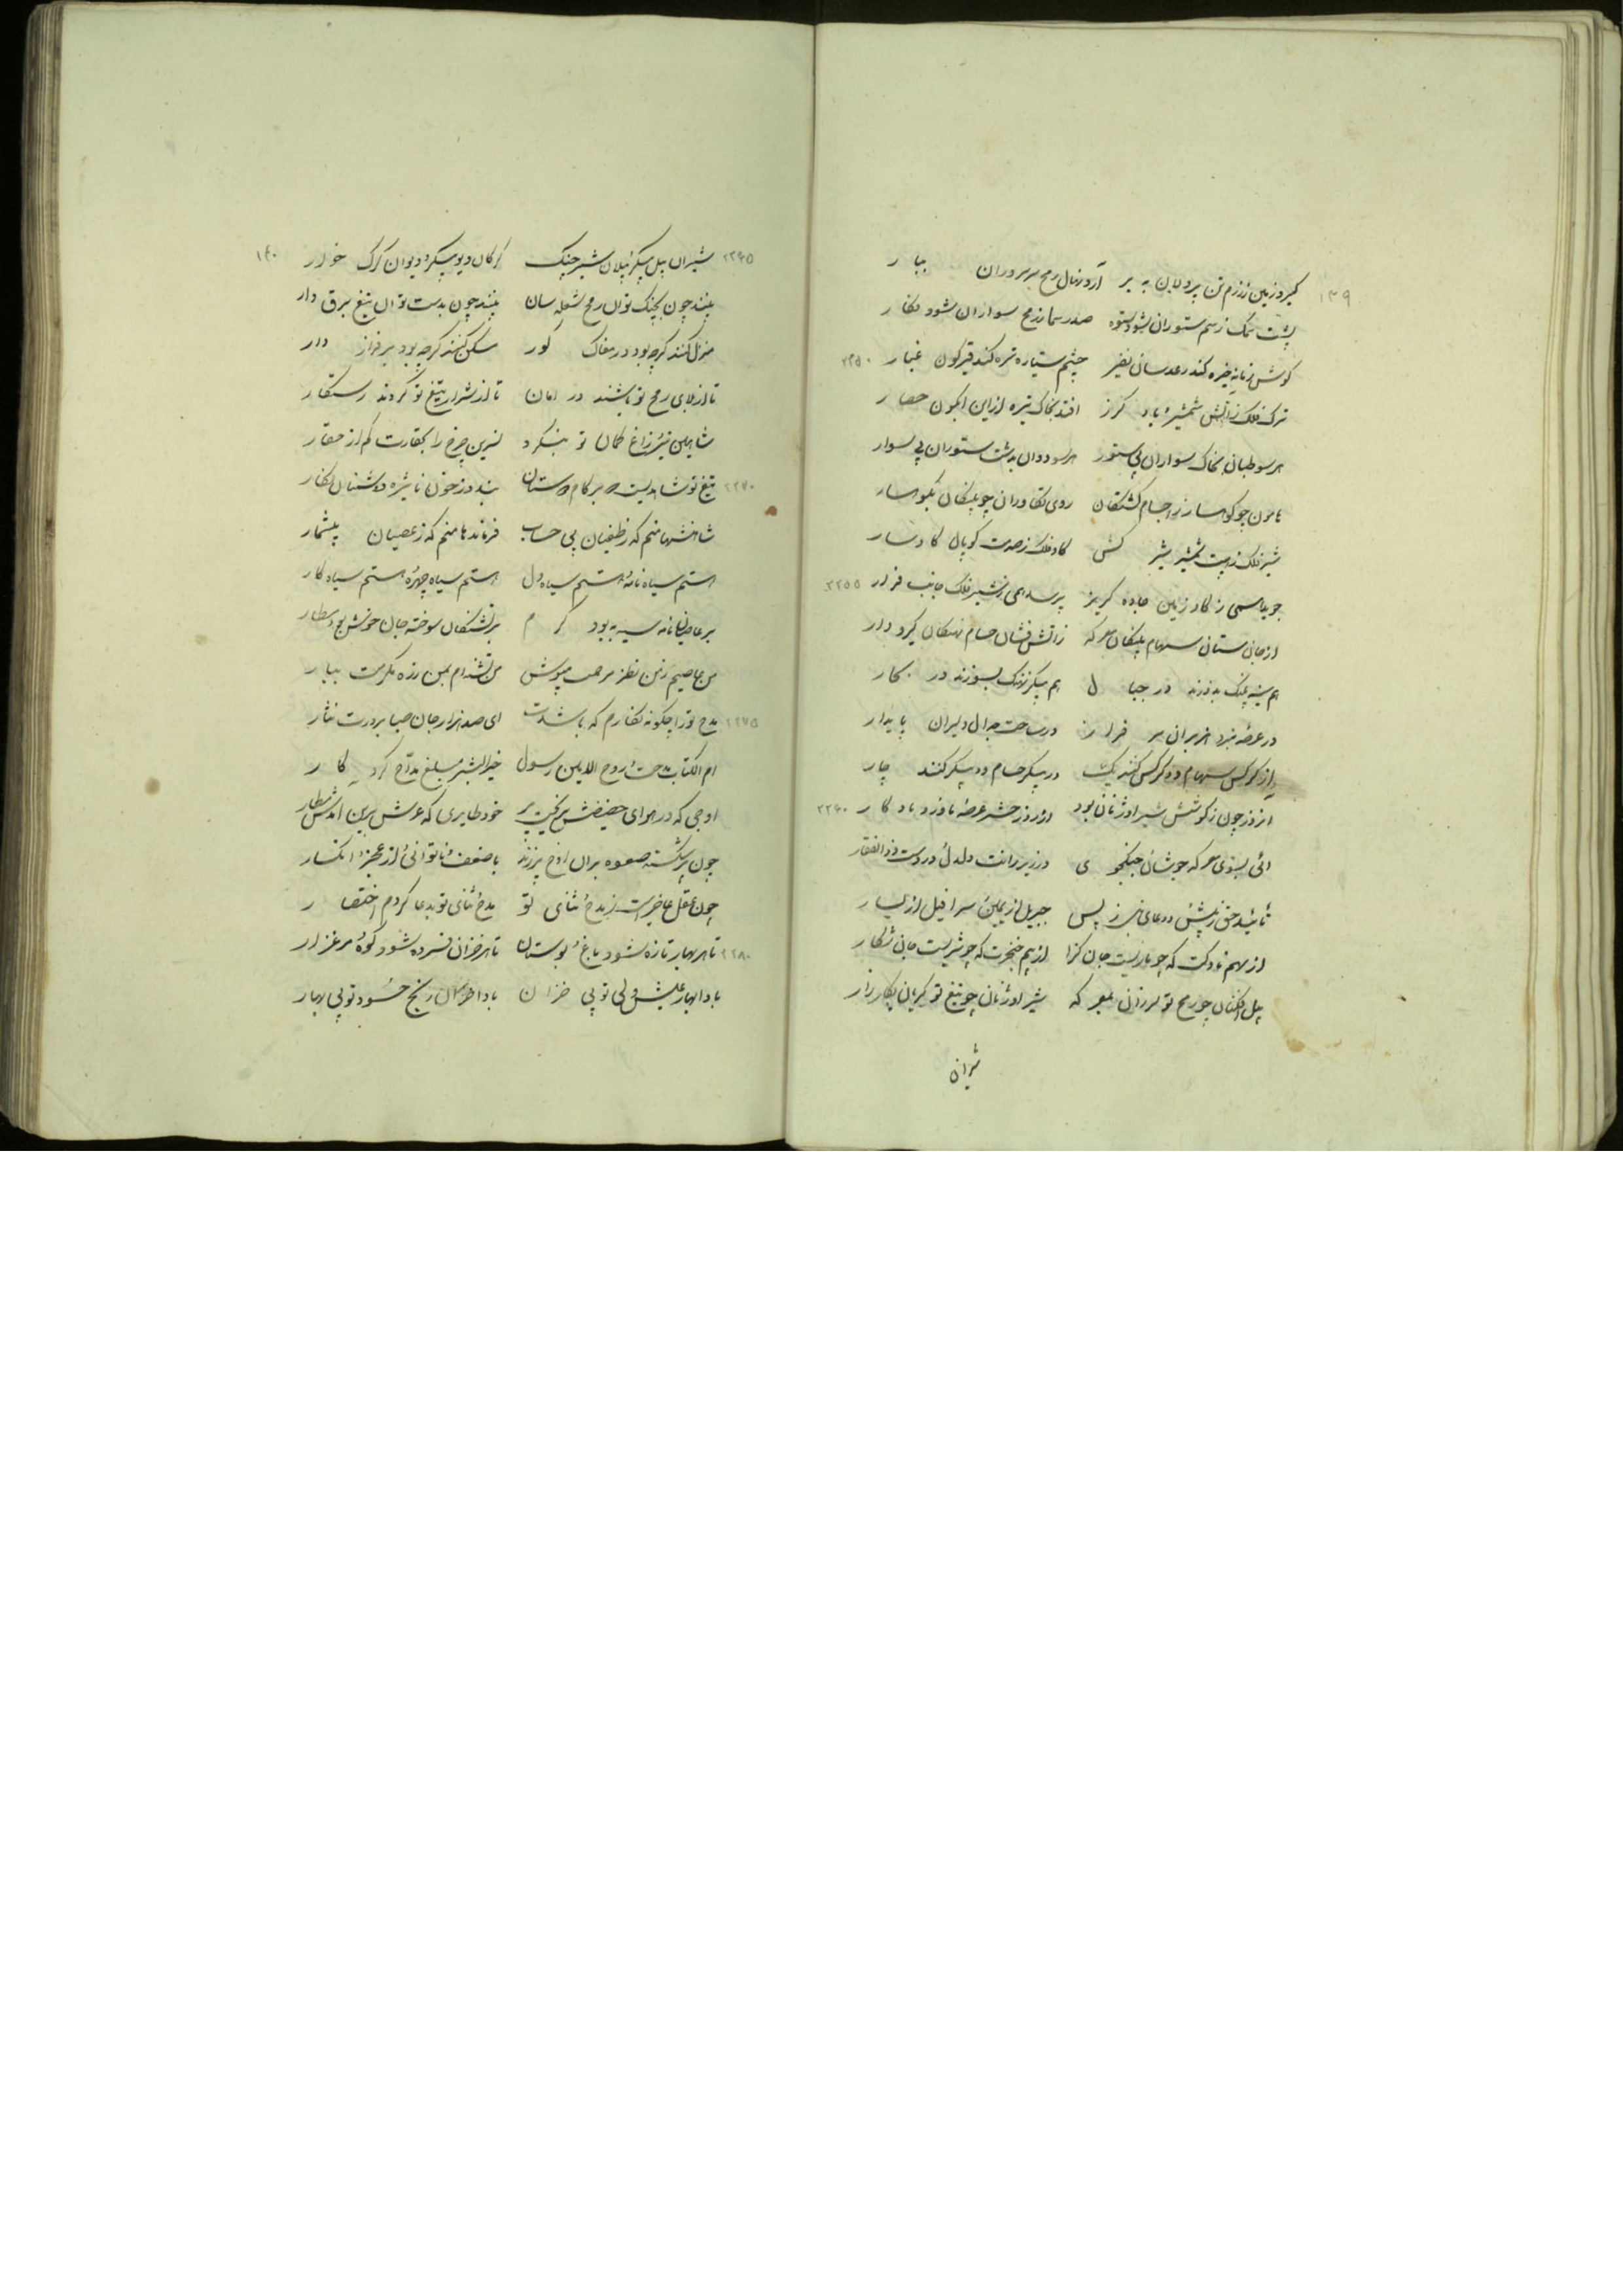 ۱۳۹
گیرد زمین ز رزم تن پردلان به بر آرد نهال رمح سر سروران ببار
پشت سمک ز سم ستوران شود ستوه صدر سما ز رمح سواران شود فکار
گوش زمانه خیره کند رعدسان نفیر چشم ستاره تیره کند قیرگون غبار ۲۲۵۰
ترک فلک ز آتش شمشیر و باد گرز افتد بخاک تیره ازین آبگون حصار
هر سو طپان بخاک سواران بی ستور هر سو دوان بدشت ستوران بی سوار
هامون چو کوهسار ز اجسام کشتگان روی تکاوران چو پلنگان بکوهسار
شیر فلک ز هیبت شمشیر شیر کش گاو فلک ز صدمت کوپال گاوسار
جویا سمی ز گاو زمین جاده گریز پرسد همی ز شیر فلک جانب فرار ۲۲۵۵
از جان ستان سهام پلنگان معرکه ز آتش فشان حسام نهنگان گیر و دار
هم سینه پلنگ بدوزند در جبال هم پیکر نهنگ بسوزند در بحار
در عرصه نبرد هزبران سر فراز در ساحت جدال دلیران پایدار
از کرکس سهام دو کرکس کنند یک در پیکر حسام دو پیکر کنند چار
آنروز چون ز کوشش شیر اوژنان بود روز حشر عرصه ناورد یادگار ۲۲۶۰
آئی بسوی معرکه جوشان جنگجوی در زیر رانت دلدل و در دست ذوالفقار
تائید حق ز پیش و دعای نبی ز پس جبریل از یمین و سرافیل از یسار
از سهم ناوکت که چو ماریست جان گزا از بیم خنجرت که چو شیریست جان شکار
پیل افکنان چو رمح تو لرزان بمعرکه شیر اوژنان چو تیغ تو گریان بکارزار
شیران
۱۴۰
۲۲۶۵ شیران پیل پیکر و پیلان شیر چنگ گرگان دیو پیکر و دیوان گرگ خوار
بینند چون بچنگ تو آن رمح شعله سان بینند چون بدست تو آن تیغ برق دار
منزل کنند گرچه بود در مغاک گور مسکن کنند گرچه بود بر فراز دار
تا از بلای رمح تو باشند در امان تا از شرار تیغ تو گردند رستگار
شاهین تیر و زاغ کمان تو بنگرد نسرین چرخ را بحقارت کم از حقار
۲۲۷۰ تیغ تو شاهدیست که بر کام دوستان بیند در خون دشمنان نگار
شاهنشها منم که ز طغیان بی حساب فرماندها منم که ز عصیان بیشمار
هستم سیاه نامه و هستم سیاه دل هستم سیاه چهره و هستم سیاه کار
بر عاصیان نامه سیه به بود کرم بر تشنگان سوخته جان خوش بود مطار
من عاصیم ز من نظر مرحمت مپوش من تشنه ام بمن نزه مکرمت ببار
۲۲۷۵ مدح تو را چگونه نگارم که باشدت ای صد هزار جان صبا بر درت نثار
ام الکتاب مدحت و روح الامین رسول خیر البشر مبلغ و مداح کردگار
اوجی که در هوای حضیضش نریخت پر خود طایری که عرش برین اندش مطار
چون پر شکسته صعوه بر آن اوج پر زند با ضعف و ناتوانی و از عجز و انکسار
چون عقل عاجزست ز مدح و ثنای تو مدح و ثنای تو بدعا کردم اختصار
۲۲۸۰ تا هر بهار تازه شود باغ و بوستان تا هر خزان فسرده شود کوه و مرغزار
بادا بهار عیش ولی تو بی خزان بادا خزان رنج حسود تو بی بهار